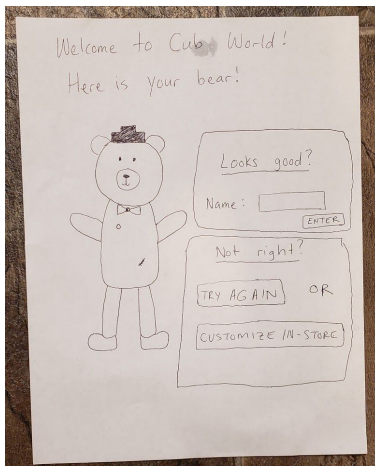 Welcome to Cub World!
Here is your bear!
Looks good?
Name:
ENTER
Not right?
TRY AGAIN OR
CUSTOMIZE IN-STORE